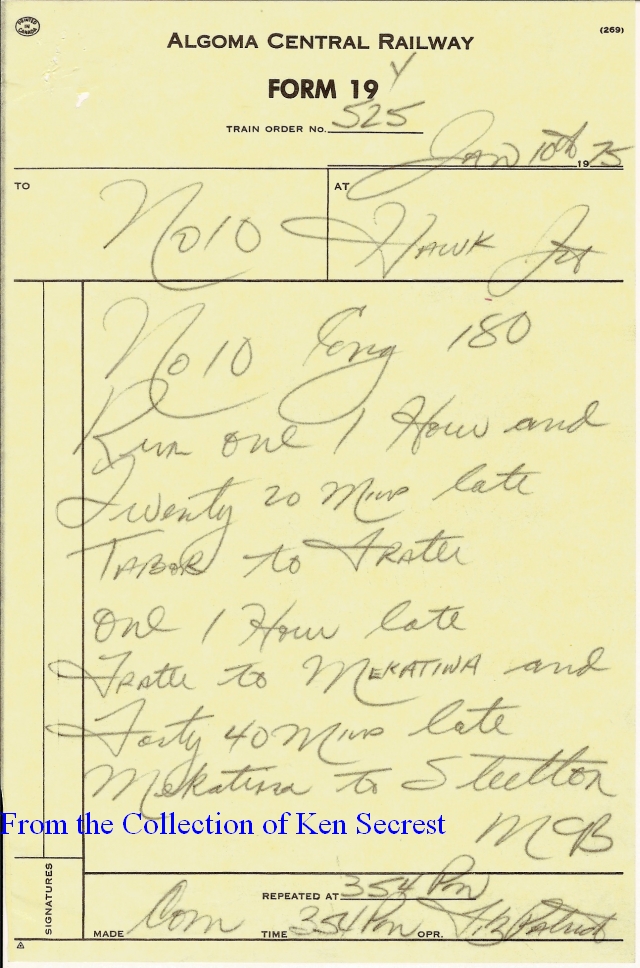 PRINTED IN CANADA
(269)
ALGOMA CENTRAL RAILWAY
FORM 19 Y
TRAIN ORDER No. 525
Jan 10th 1975
TO No 10 AT Hawk Jct
No 10 Eng 180
Run one 1 Hour and
Twenty 20 Mins late
TABOR to Frater
One 1 Hour late
Frater to MEKATINA and
Forty 40 Mins late
Mekatina to Steelton
From the Collection of Ken Secrest
MCB
SIGNATURES
REPEATED AT 354 PM
MADE Com TIME 354 PM OPR. Fitzpatrick